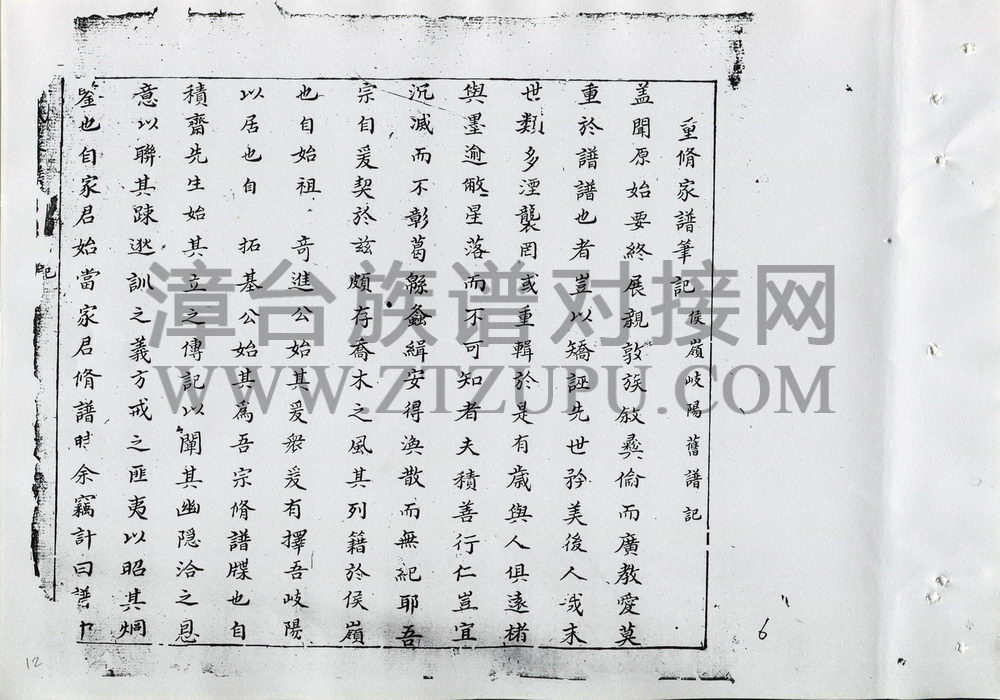 重脩家譜筆記 侯嶺岐陽舊譜記
盖聞原始要終展親敦族敘彝倫而廣教愛莫
重於譜譜也者豈以矯誣先世矜美後人哉末
世類多湮襲罔或重輯於是有歲與人俱遠楮
與墨逾敝星落而不可知者夫積善行仁豈宜
沉减而不彰葛緜螽緝安得渙散而無紀耶吾
宗自爰契於兹頗存喬木之風其列籍於侯嶺
也自始祖 奇進公始其爰衆爰有擇吾岐陽
以居也自 拓基公始其爲吾宗脩譜牒也自
積齋先生始其立之傳記以闡其幽隱洽之恩
意以聯其踈逖訓之義方戒之匪夷以昭其炯
鉴也自家君始當家君脩譜時余竊計曰譜
記
漳台族谱对接网
WWW.ZTZUPU.COM
12
6